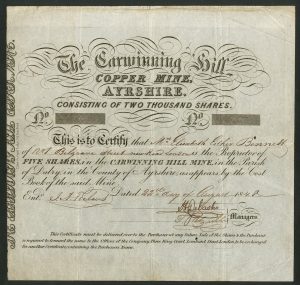 The Carwinning Hill
COPPER MINE,
AYRSHIRE.
CONSISTING OF TWO THOUSAND SHARES.
No. No.
This is to Certify that Mrs Elizabeth Esther Bennett
of Belgrave Street is the Proprietor of
FIVE SHARES, in the CARWINNING HILL MINE, in the Parish
of Dalry, in the County of Ayrshire, as appears by the Cost
Book of the said Mine.
Entd. Dated 22nd day of August 1848
Managers.
This Certificate must be delivered over to the Purchaser at any future Sale of the Shares & the Purchaser
is required to forward the same to the Offices of the Company, Lombard Street London to be exchanged
for another Certificate containing the Purchasers Name.